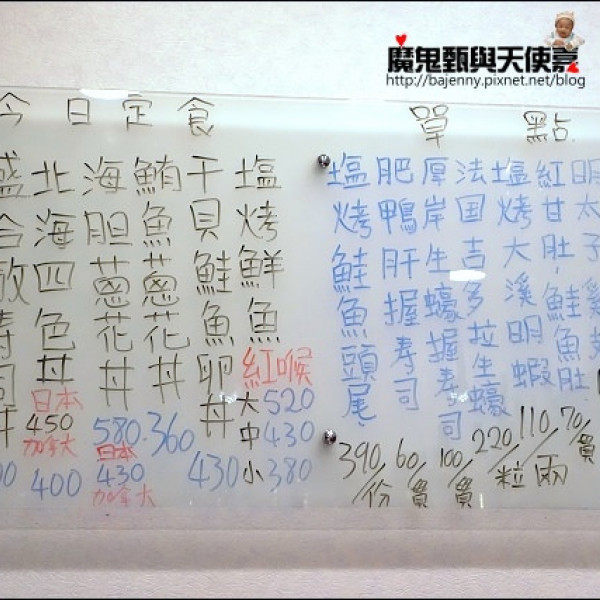 魔鬼甄與天使嘉
http://bajenny.pixnet.net/blog
今日定食
北海四色丼
日本
450
加拿大
400
海胆蔥花丼
580
日本
430
加拿大
鮪魚蔥花丼
360
干貝鮭魚卵丼
430
塩烤鮮魚
紅喉
大520
中430
小380
單點
塩烤鮭魚頭尾
390/份
肥鴨肝握寿司
60/貫
厚岸生蠔握寿司
100/貫
法国吉多拉生蠔
220/粒
塩烤大溪明蝦
110/兩
紅甘肚、鮭魚肚
70/貫
明太子